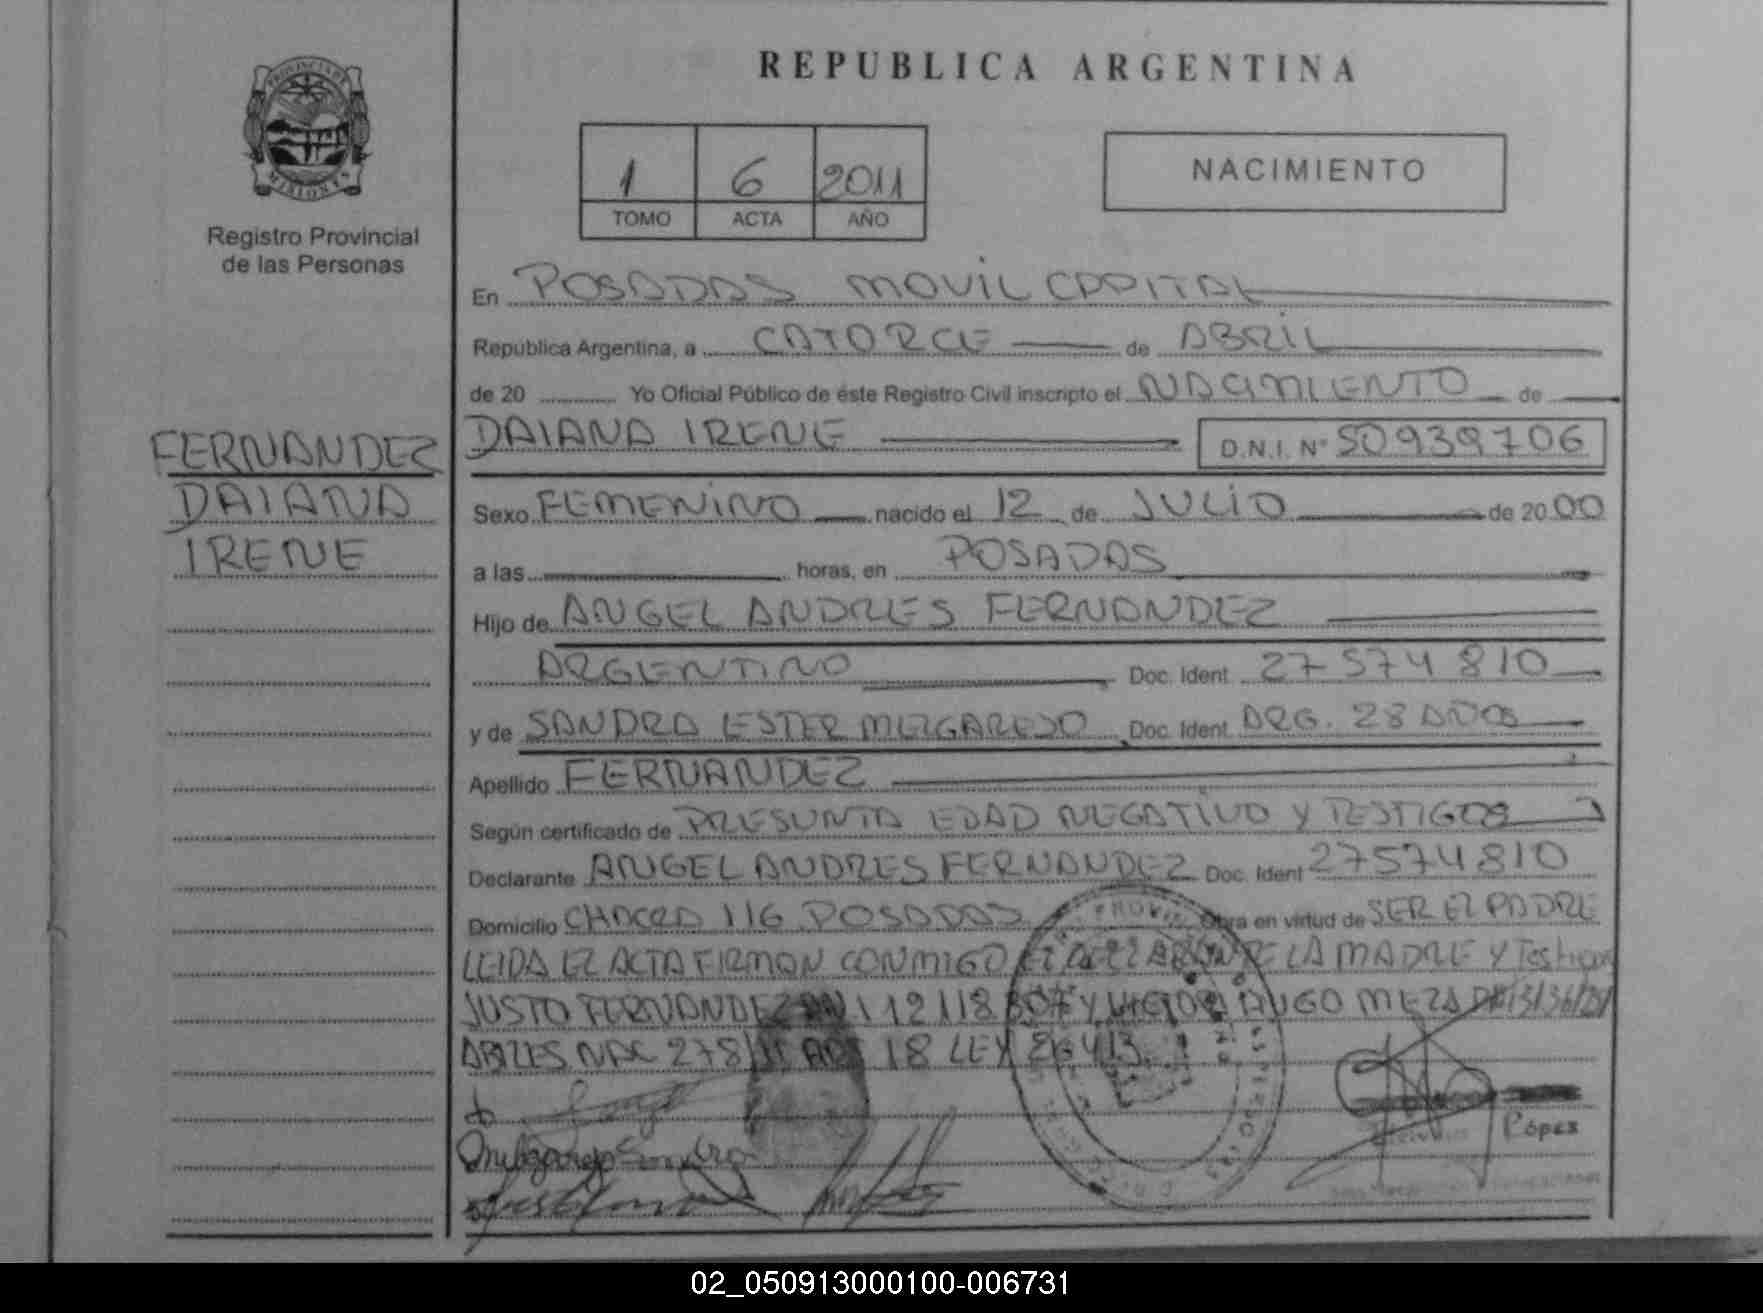 REPUBLICA ARGENTINA
PROVINCIA DE
MISIONES
Registro Provincial
de las Personas
1 6 2011
TOMO ACTA AÑO
NACIMIENTO
En POSADAS MOVIL CAPITAL
Republica Argentina, a CATORCE de ABRIL
de 20 Yo Oficial Público de éste Registro Civil inscripto el NACIMIENTO de
FERNANDEZ
DAIANA
IRENE
DAIANA IRENE D.N.I. N° 50939706
Sexo FEMENINO nacido el 12 de JULIO de 20 00
a las horas, en POSADAS
Hijo de ANGEL ANDRES FERNANDEZ
ARGENTINO Doc. Ident. 27574810
y de SANDRA ESTER MELGAREJO Doc. Ident. ARG. 28 AÑOS
Apellido FERNANDEZ
Según certificado de PRESUNTA EDAD NEGATIVO Y TESTIGOS
Declarante ANGEL ANDRES FERNANDEZ Doc. Ident 27574810
Domicilio CHACRA 116 POSADAS Obra en virtud de SER EL PADRE
LEIDA EL ACTA FIRMAN CONMIGO EL DECLARANTE LA MADRE Y Testigos
JUSTO FERNANDEZ HUGO MEZA
18 LEY 26413
López
02_050913000100-006731